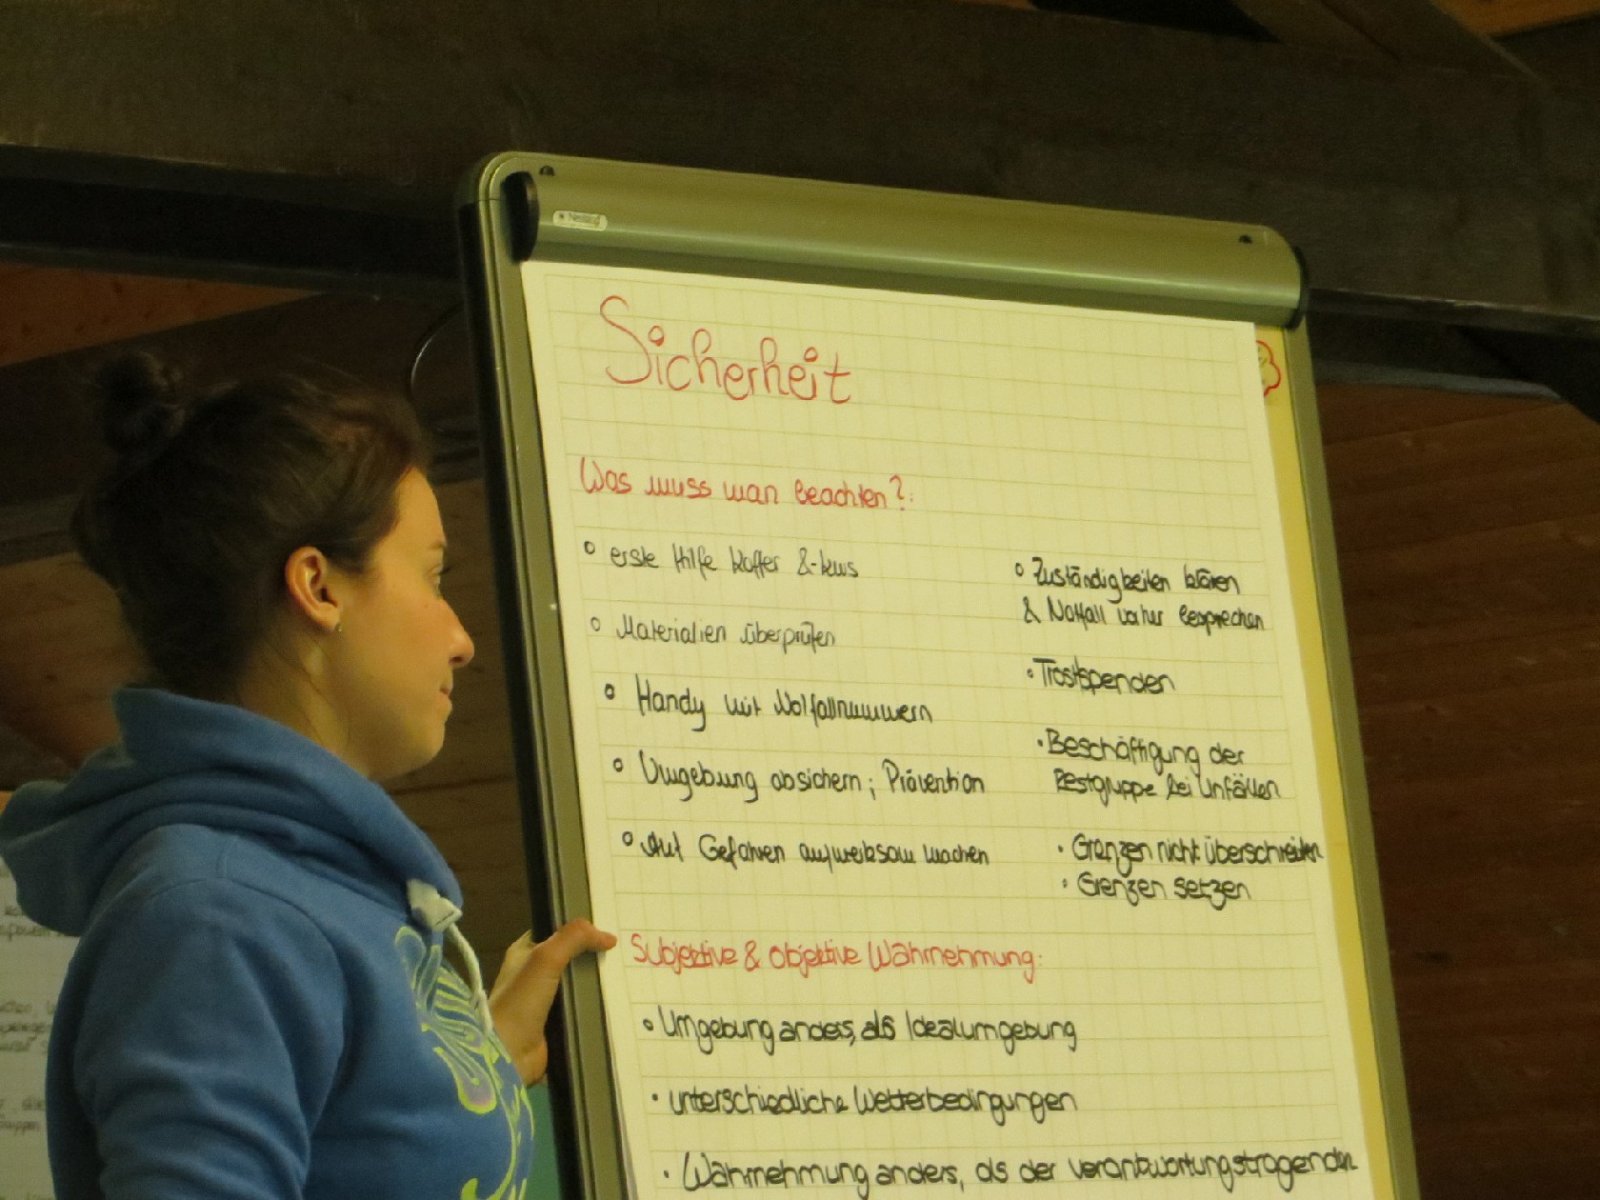 Nobo
Sicherheit
Was muss man beachten?:
° erste Hilfe Koffer & -kurs
° Materialien überprüfen
° Handy mit Notfallnummern
° Umgebung absichern; Prävention
° Auf Gefahren aufmerksam machen
° Zuständigkeiten klären
& Notfall vorher besprechen
• Trostspenden
• Beschäftigung der
Restgruppe bei Unfällen
• Grenzen nicht überschreiten
• Grenzen setzen
Subjektive & objektive Wahrnehmung:
° Umgebung anders, als Idealumgebung
• unterschiedliche Wetterbedingungen
• Wahrnehmung anders, als der verantwortungstragenden